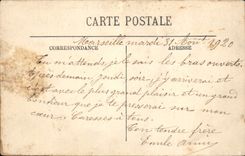 CARTE POSTALE
CORRESPONDANCE ADRESSE
Marseille mardi 31 Août 1920
Tu m'attends, je le sais les bras ouverts.
Après demain, jeudi soir, j'y arriverai et
c'est avec le plus grand plaisir et un grand
bonheur que je te presserai sur mon
cœur. Caresses à tous.
Ton tendre frère
Emile